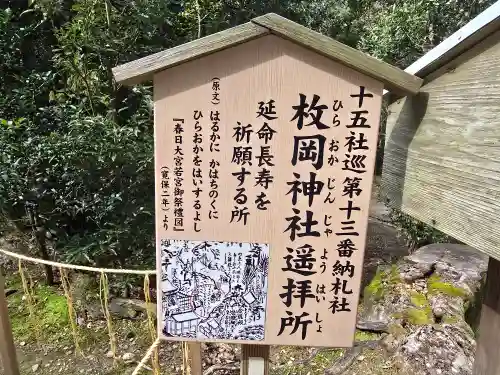 十五社巡第十三番納札社
枚岡神社遥拝所
ひらおかじんじゃようはいしょ
延命長寿を
祈願する所
(原文)はるかに かはちのくに
ひらおかをはいするよし
『春日大宮若宮御祭禮図』
(寛保二年)より